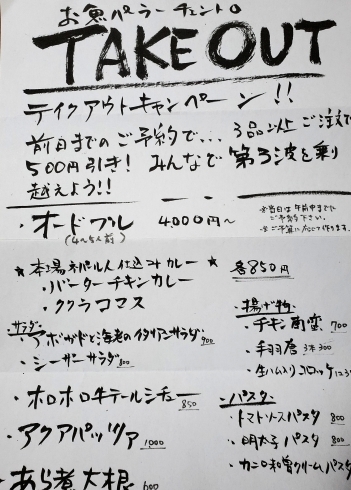 お魚パーラー チェント。
TAKE OUT
テイクアウトキャンペーン!!
前日までのご予約で... 3品以上ご注文で
500円引き! みんなで 第3波を乗り
越えよう!!
・オードブル 4,000円〜
(4〜5人前)
※当日は午前中までに
ご予約下さい。
※ご予算に応じて作ります。
★本場ネパール人仕込みカレー ★ 各850円
・バターチキンカレー
・ククラコマス
・サラダ・
・アボガドと海老のイタリアンサラダ 900
・シーザーサラダ 800
・揚げ物・
・チキン南蛮 700
・手羽唐 3本 300
・生ハム入りコロッケ
・ホロホロ牛テールシチュー 850
・アクアパッツァ 1000
・あら煮大根 600
・パスタ・
・トマトソースパスタ 800
・明太子パスタ 800
・カニの味噌クリームパスタ